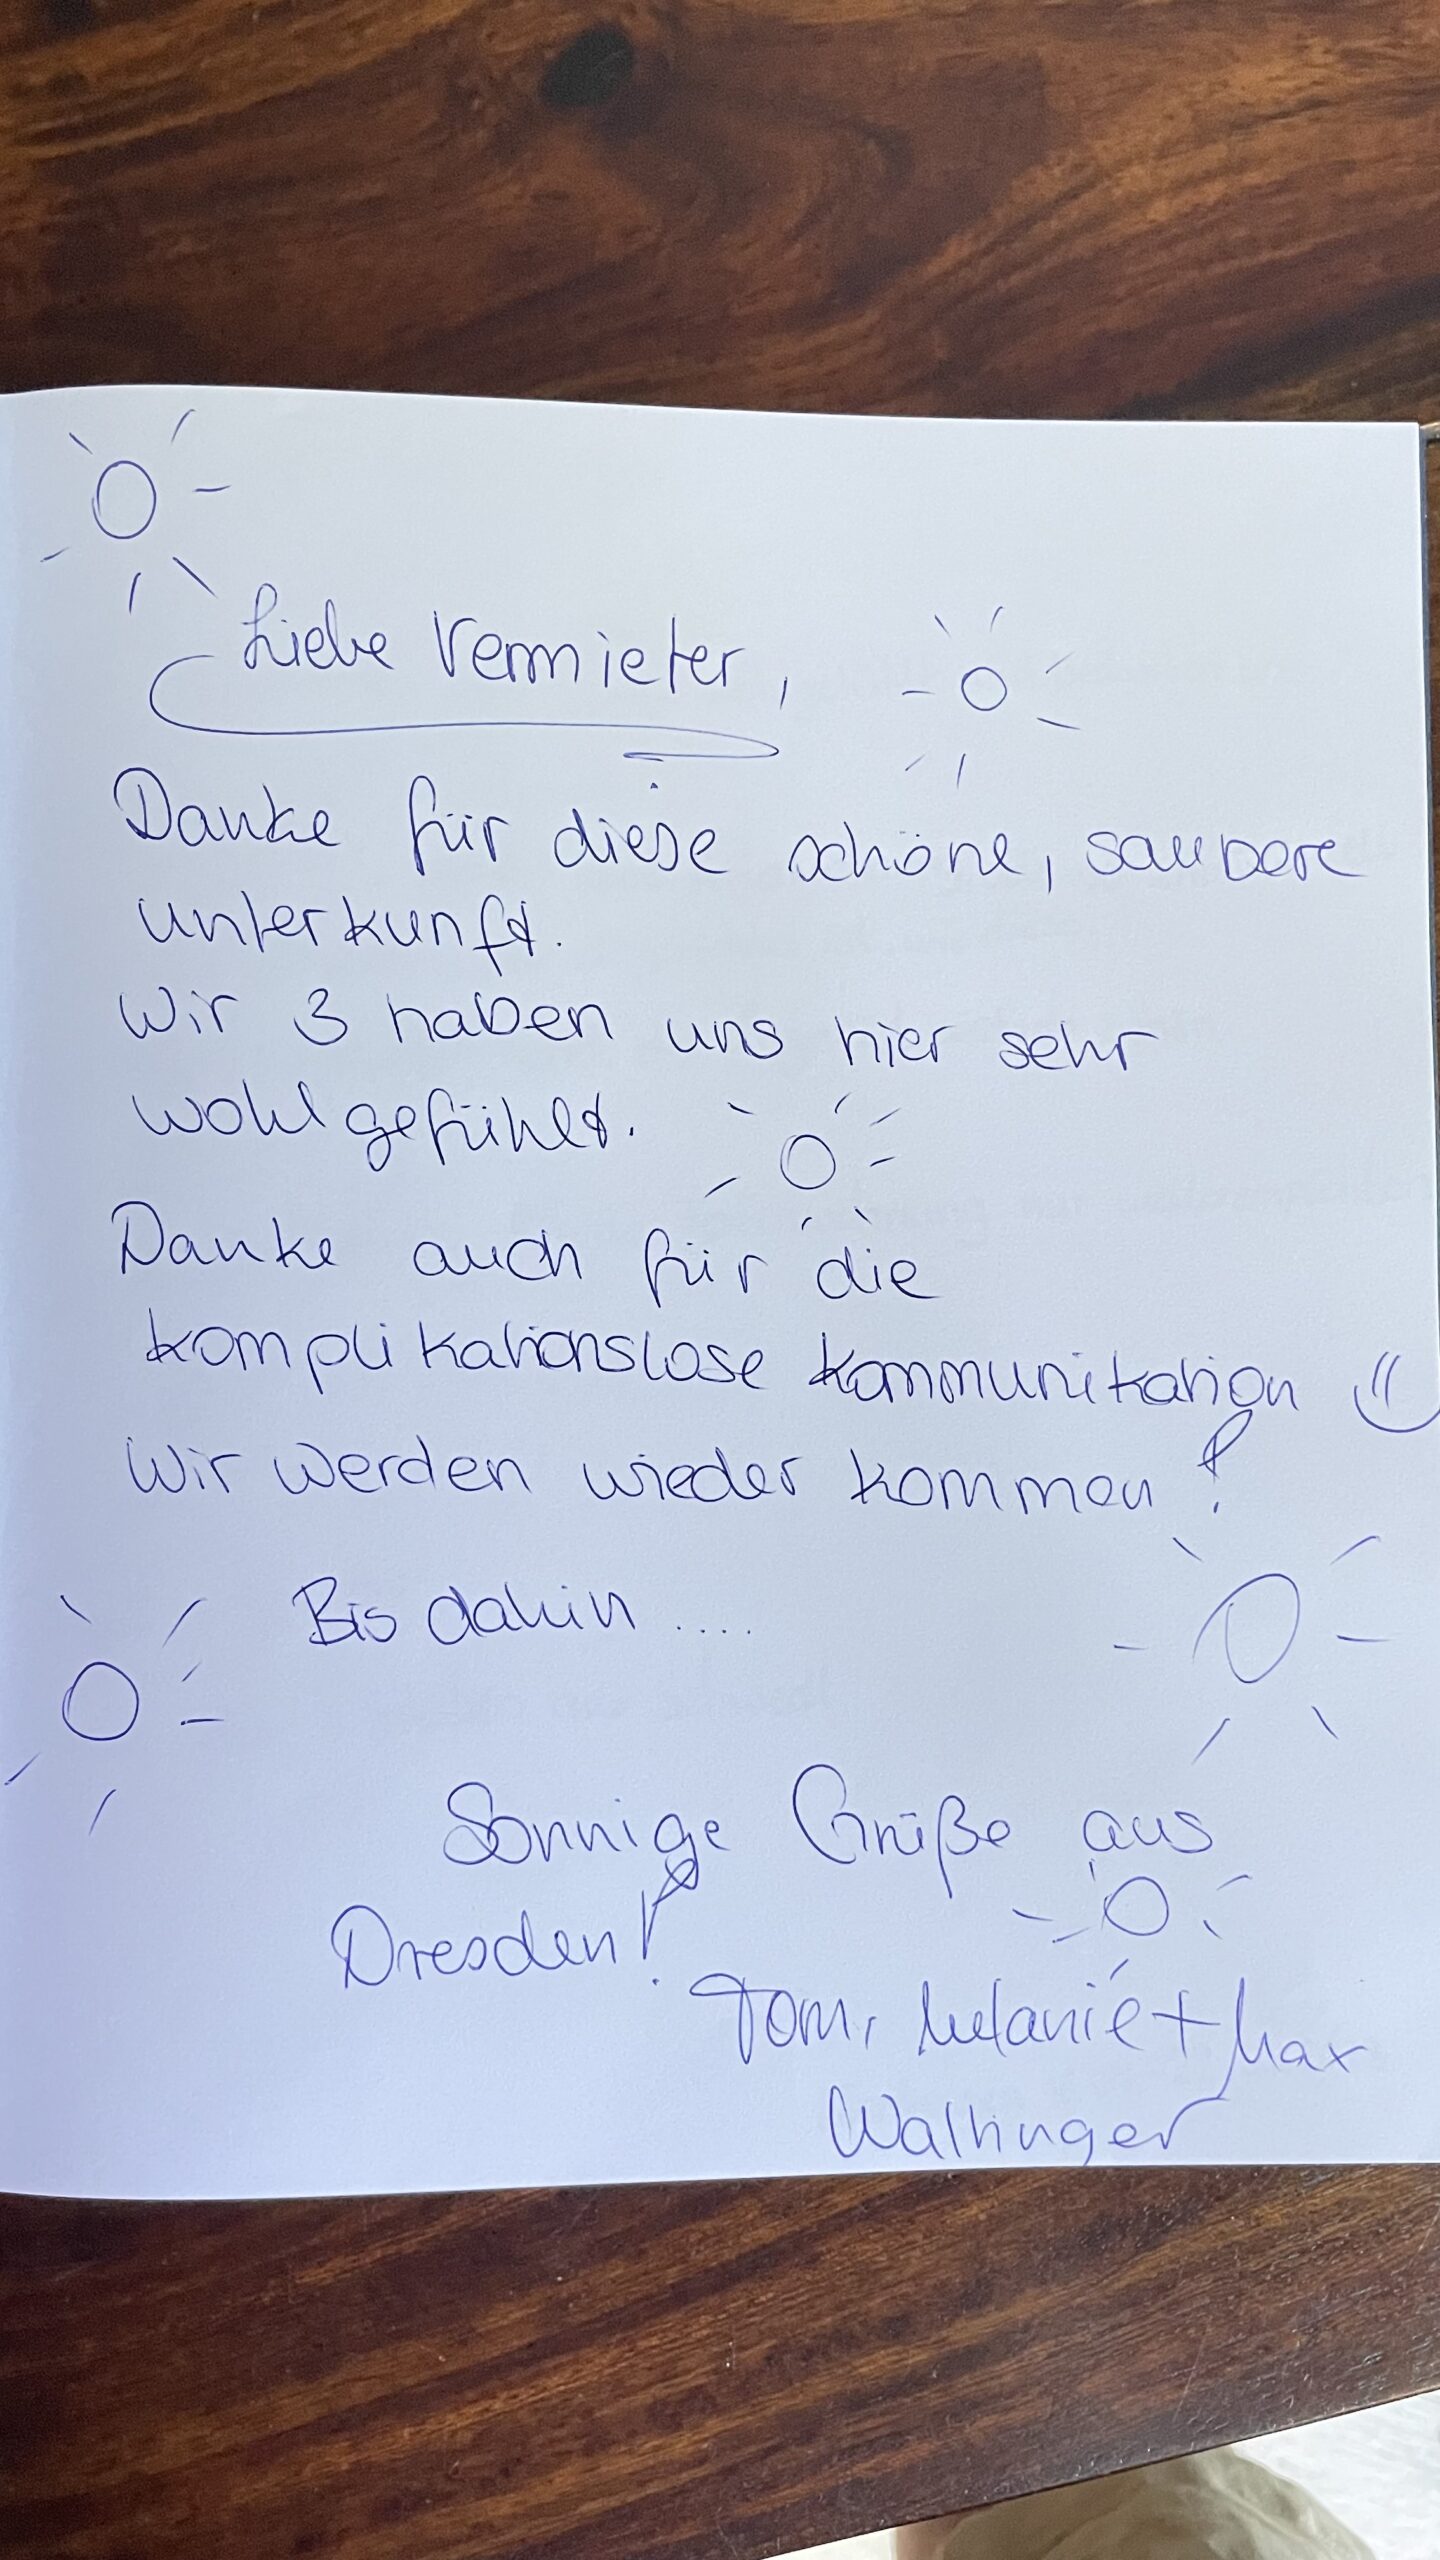 Liebe Vermieter,
Danke für diese schöne, saubere
unterkunft.
Wir 3 haben uns hier sehr
wohl gefühlt.
Danke auch für die
komplikationslose Kommunikation
Wir werden wieder kommen!
Bis dahin ....
Sonnige Grüße aus
Dresden!
Tom, Melanie + Max